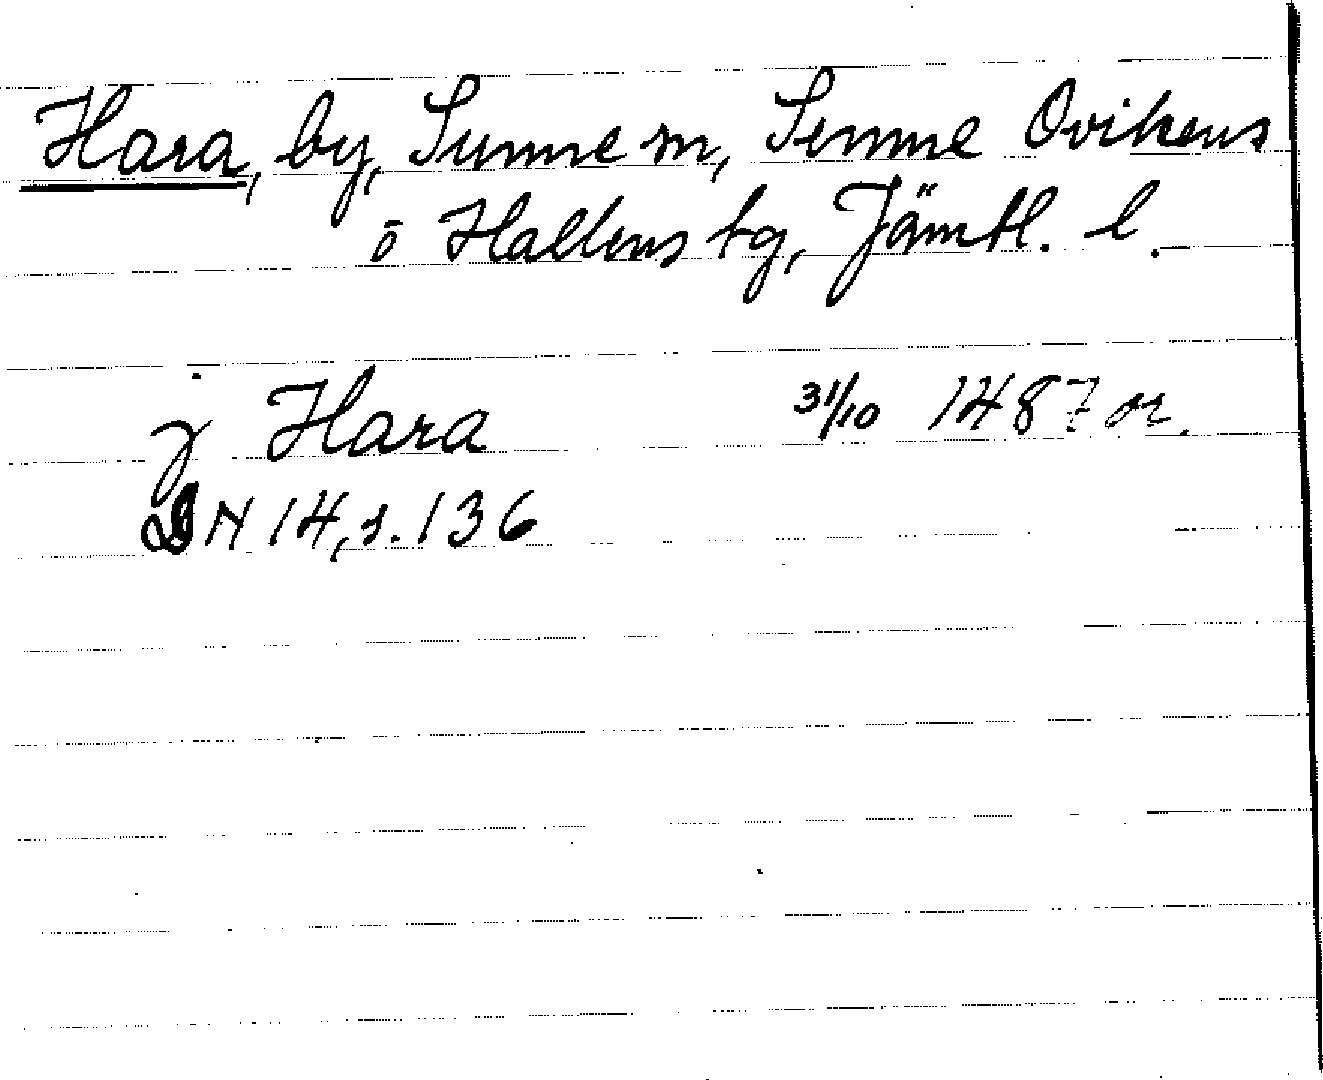 Hara, by, Sunne sn, Sunne Ovikens
o Hallens tg, Jämtl. l.
j Hara 31/10 1487 or.
DN 14, s. 136